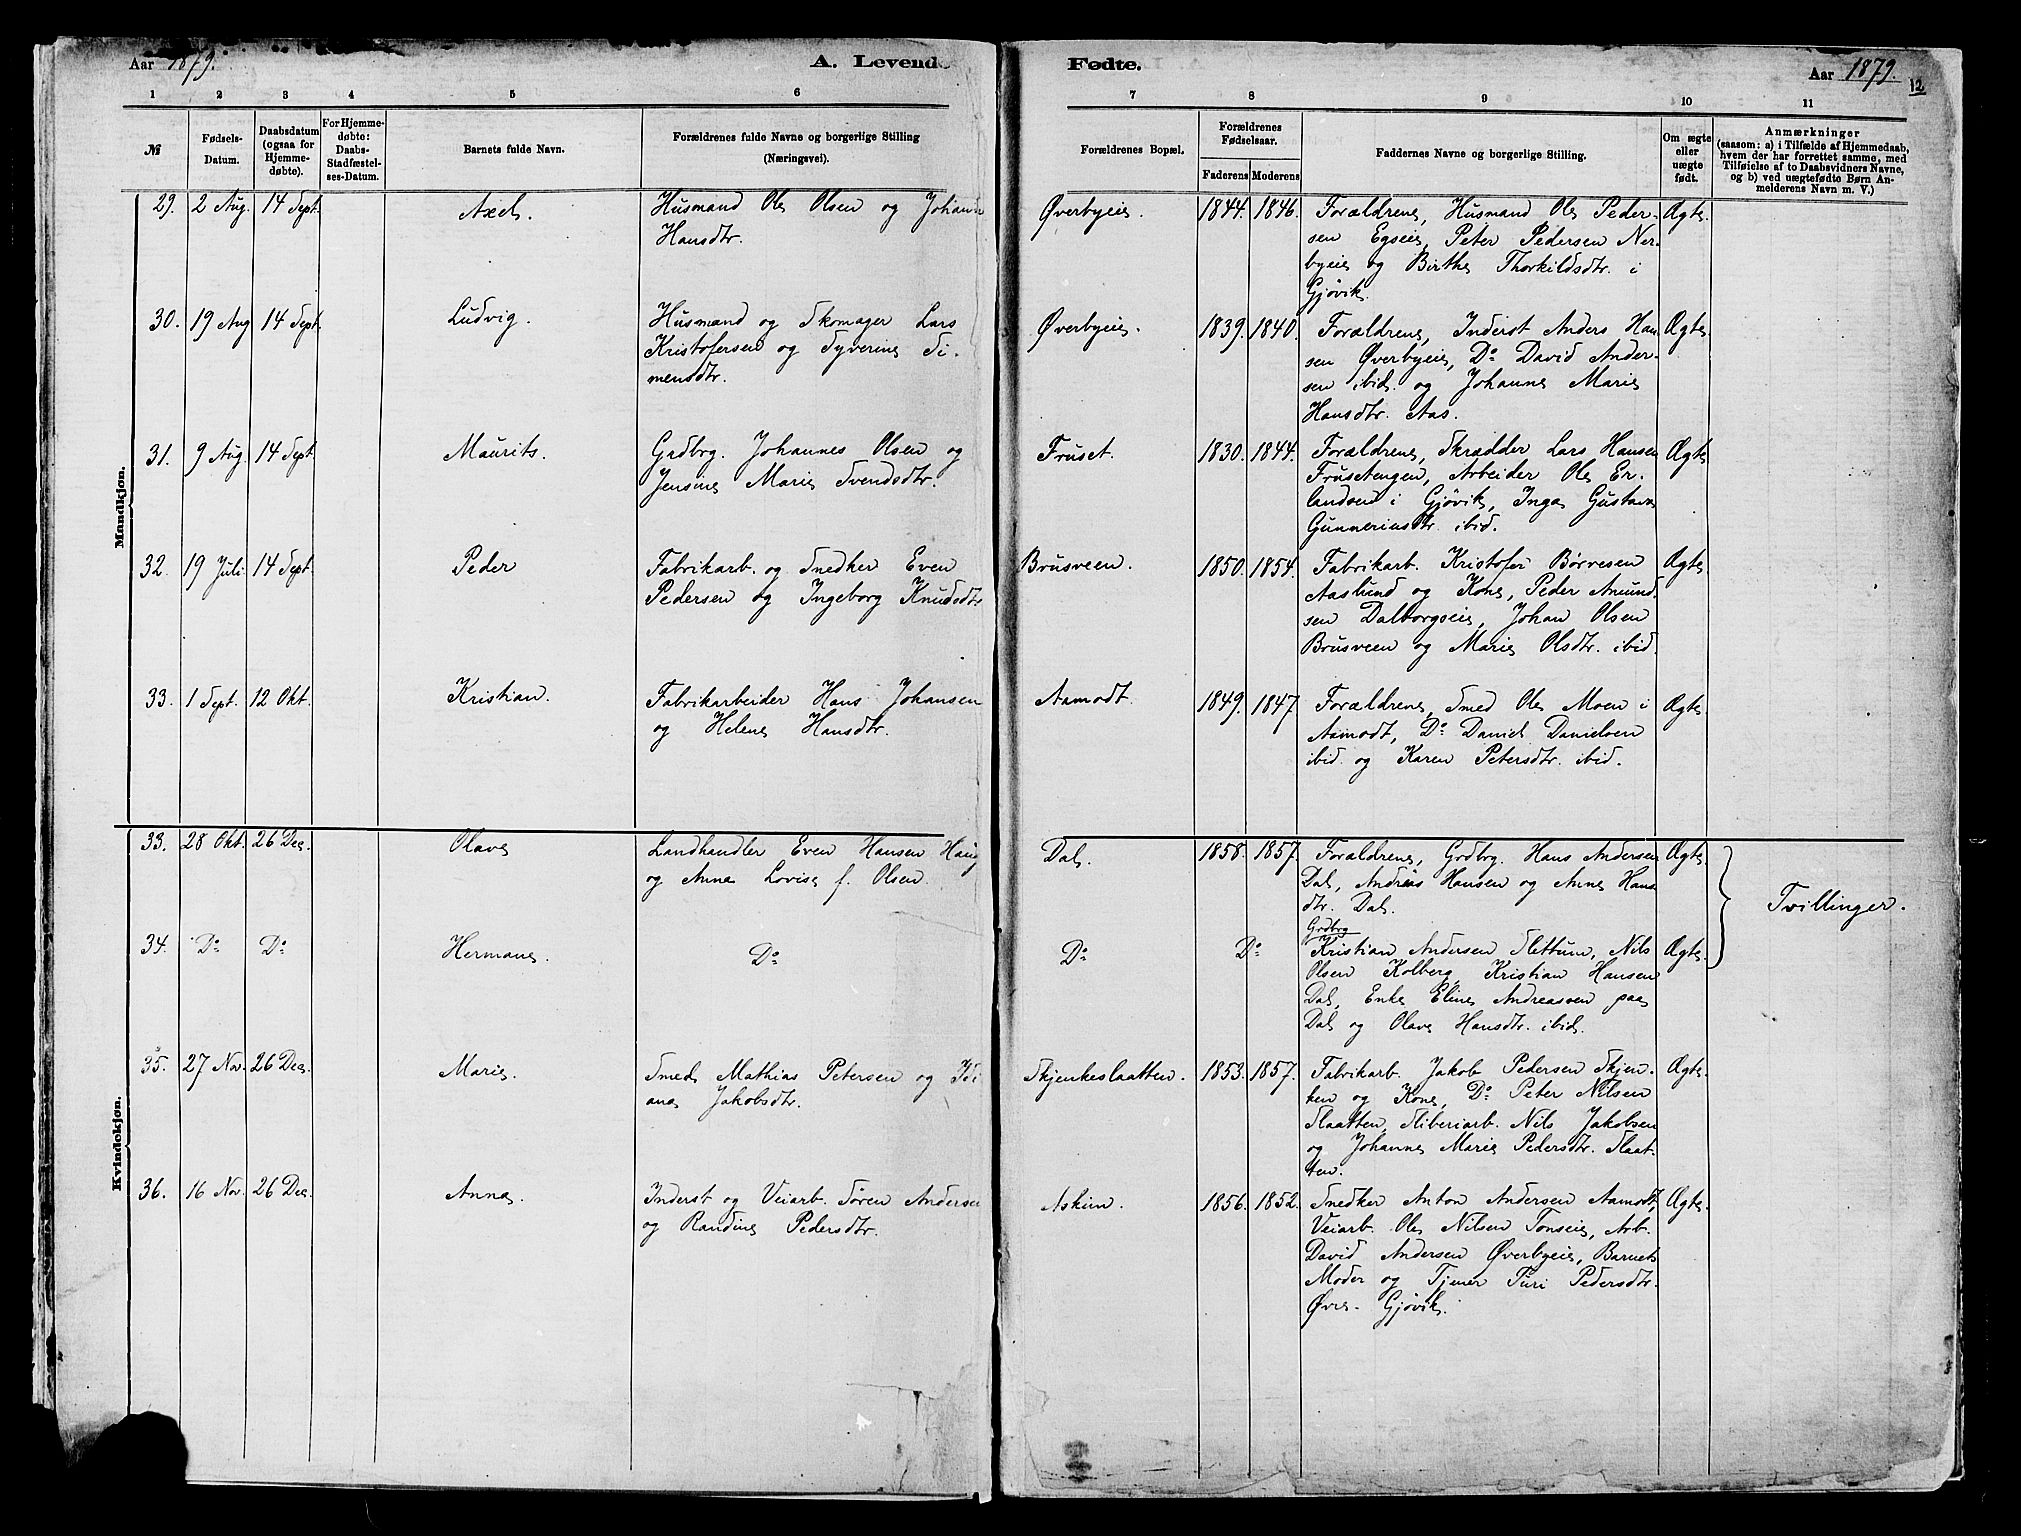 Aar 1879. A. Levende Fødte. Aar 1879. 12
1 2 3 4 5 6 7 8 9 10 11
№
Fødsels-
Datum.
Daabsdatum
(ogsaa for
Hjemme-
døbte).
For Hjemme-
døbte:
Daabs-
Stadfæstel-
ses-Datum.
Barnets fulde Navn.
Forældrenes fulde Navne og borgerlige Stilling
(Næringsvei).
Forældrenes Bopæl.
Forældrenes
Fødselsaar.
Faderens Moderens
Faddernes Navne og borgerlige Stilling.
Om ægte
eller
uægte
født.
Anmærkninger
(saasom: a) i Tilfælde af Hjemmedaab,
hvem der har forrettet samme, med
Tilføielse af to Daabsvidners Navne,
og b) ved uægtefødte Børn An-
melderens Navn m. V.)
Mandkjøn.
29. 2 Aug. 14 Sept. Axel.
Husmand Ole Olsen og Johanne
Hansdtr.
Øverbyeie. 1844. 1846.
Forældrene, Husmand Ole Peder-
sen Egseie, Peter Pedersen Ner-
byeie og Birthe Thorkildsdtr. i
Gjøvik.
Ægte.
30. 19 Aug 14 Sept. Ludvig.
Husmand og Skomager Lars
Kristofersen og Syverine Si-
mensdtr.
Øverbyeie. 1839. 1840.
Forældrene, Inderst Anders Han-
sen Øverbyeie, Do David Ander-
sen ibid. og Johanne Marie
Hansdtr. Aas.
Ægte
31. 9 Aug. 14 Sept. Maurits.
Grdbrg. Johannes Olsen og
Jensine Marie Svendsdtr.
Fruset. 1830. 1844.
Forældrene, Skrædder Lars Hansen
Frusetengen, Arbeider Ole Er-
landsen i Gjøvik, Inga Gustava
Gunneriusdtr. ibid.
Ægte
32. 19 Juli 14 Sept. Peder
Fabrikarb. og Snedker Even
Pedersen og Ingeborg Knudsdtr
Brusveen. 1850. 1854.
Fabrikarb. Kristofer Børresen
Aaslund og Kone, Peder Amund-
sen Dalborgseie, Johan Olsen
Brusveen og Marie Olsdtr. ibid.
Ægte
33. 1 Sept. 12 Okt. Kristian.
Fabrikarbeider Hans Johansen
og Helene Hansdtr.
Aamodt. 1849. 1847.
Forældrene, Smed Ole Moen i
Aamodt, Do Daniel Danielsen
ibid. og Karen Petersdtr. ibid.
Ægte.
Kvindekjøn.
33. 28 Okt. 26 Dec. Olave
Landhandler Even Hansen Haug
og Anne Lovise f. Olsen.
Dal. 1858. 1857.
Forældrene, Grdbrg. Hans Andersen
Dal, Andreas Hansen og Anne Hans
dtr. Dal.
Ægte.
Tvillinger.
34. Do Do Hermane. Do Do Do
Grdbrg
Kristian Andersen Slettum, Nils
Olsen Kolberg, Kristian Hansen
Dal, Enke Eline Andreasen paa
Dal og Olave Hansdtr. ibid.
Ægte.
35. 27 Nov. 26 Dec. Marie.
Smed Mathias Petersen og Idi
ane Jakobsdtr.
Skjenkeslaatten. 1853. 1857.
Fabrikarb. Jakob Pedersen Skjen-
ken og Kone, Do Peter Nilsen
Slaatten, Sliberiarb. Nils Jakobsen
og Johanne Marie Pedersdtr. Slaat-
ten.
Ægte.
36. 16 Nov. 26 Dec. Anna.
Inderst og Veiarb. Søren Andersen
og Randine Pedersdtr.
Askim. 1856. 1852.
Snedker Anton Andersen Aamodt,
Veiarb. Ole Nilsen Tonseie, Arb.
David Andersen Øverbyeie, Barnets
Moder og Tjener Turi Pedersdtr.
Øvre Gjøvik.
Ægte.